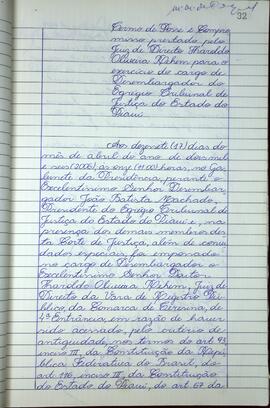 32
Termo de Posse e Compro
misso prestado pelo
Juiz de Direito Haroldo
Oliveira Rehem para o
exercício do cargo de
Desembargador do
Egrégio Tribunal de
Justiça do Estado do
Piauí
Aos dezessete (17) dias do
mês de abril do ano de dois mil
e seis (2006), às onze (11:00) horas, no Ga-
binete da Presidência, perante o
Excelentíssimo Senhor Desembar
gador João Batista Machado,
Presidente do Egrégio Tribunal de
Justiça do Estado do Piauí e, na
presença dos demais membros des
ta Corte de Justiça, além de con-
vidados especiais, foi empossado
no cargo de Desembargador o
Excelentíssimo Senhor Doutor
Haroldo Oliveira Rehem, Juiz de
Direito da Vara de Registro Pú-
blico, da Comarca de Teresina, de
4ª Entrância, em razão de haver
sido acessado, pelo critério de
antiguidade, nos termos do art. 93,
inciso III, da Constituição da Repú
blica Federativa do Brasil, do
art. 116, inciso III, da Constituição
do Estado do Piauí, do art. 67 da